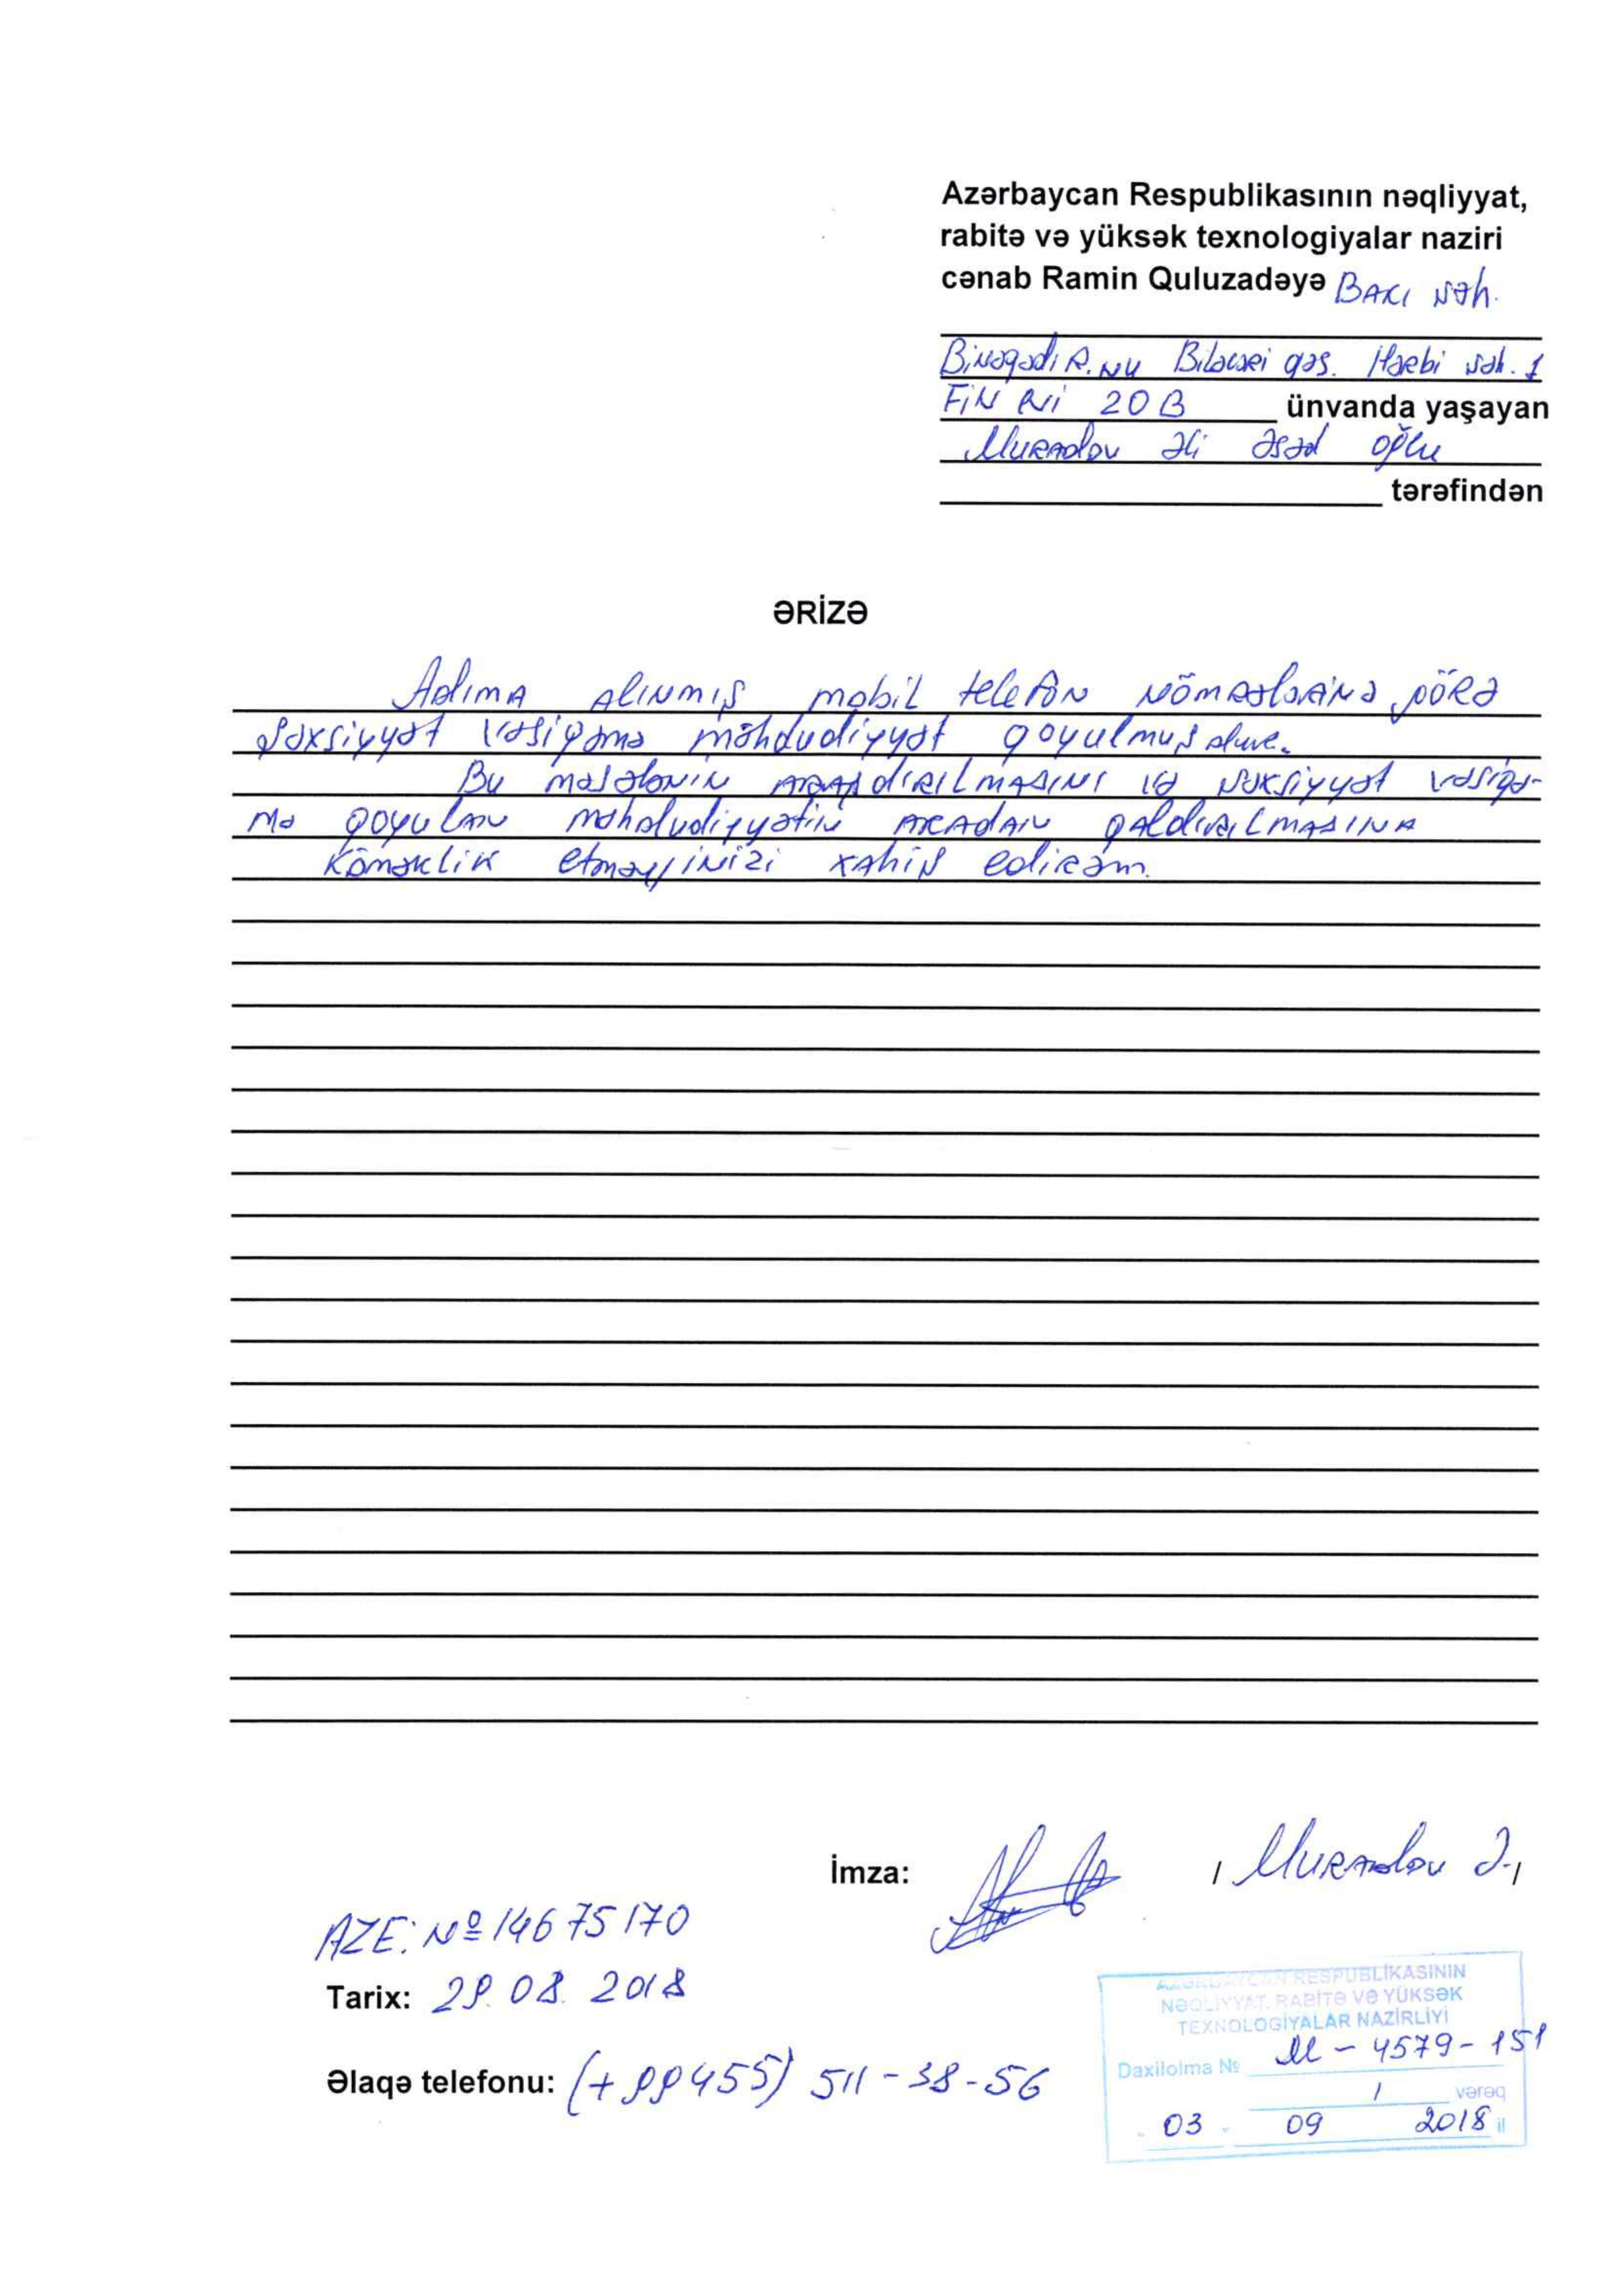 Azərbaycan Respublikasının nəqliyyat,
rabitə və yüksək texnologiyalar naziri
cənab Ramin Quluzadəyə Bakı şəh.
Binəqədi R.nu Biləcəri qəs. Hərbi şəh. 1
20 B ünvanda yaşayan
Muradov Əli Əsəd oğlu
tərəfindən
ƏRİZƏ
Adıma alınmış mobil telefon nömrələrinə görə
Şəxsiyyət vəsiqəmə məhdudiyyət qoyulmuşdur.
Bu məsələnin araşdırılmasını və şəxsiyyət vəsiqə-
mə qoyulan məhdudiyyətin aradan qaldırılmasına
köməklik etməyinizi xahiş edirəm.
İmza: / Muradov Ə./
AZE: № 14675170
Tarix: 29.08.2018
Əlaqə telefonu: (+99455) 511-38-56
AZƏRBAYCAN RESPUBLİKASININ
NƏQLİYYAT, RABİTƏ VƏ YÜKSƏK
TEXNOLOGİYALAR NAZİRLİYİ
Daxilolma № M-4579-151
1 vərəq
03 09 2018 il